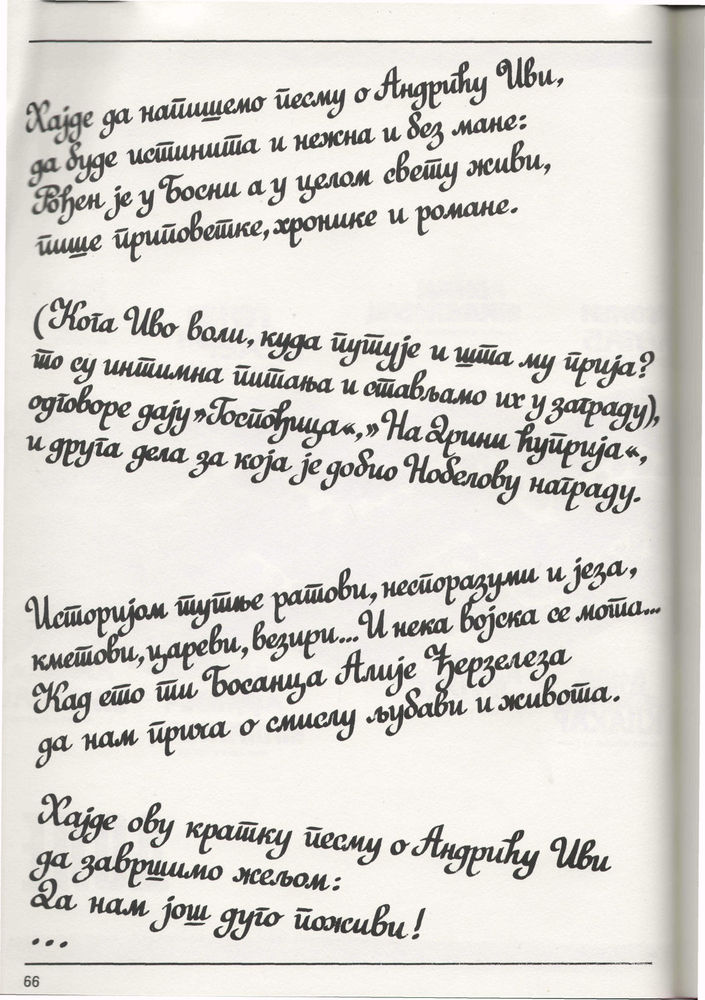 Хајде да напишемо песму о Андрићу Иви,
да буде истинита и нежна и без мане:
Рођен је у Босни а у целом свету живи,
пише приповетке, хронике и романе.
(Кога Иво воли, куда путује и шта му прија?
то су интимна питања и стављамо их у заграду),
одговоре дају »Госпођица«, »На Дрини ћуприја«,
и друга дела за која је добио Нобелову награду.
Историјом тутње ратови, неспоразуми и језа,
кметови, цареви, везири... И нека војска се мота...
Кад ето ти Босанца Алије Ђерзелеза
да нам прича о смислу љубави и живота.
Хајде ову кратку песму о Андрићу Иви
да завршимо жељом:
Да нам још дуго поживи!
...
66